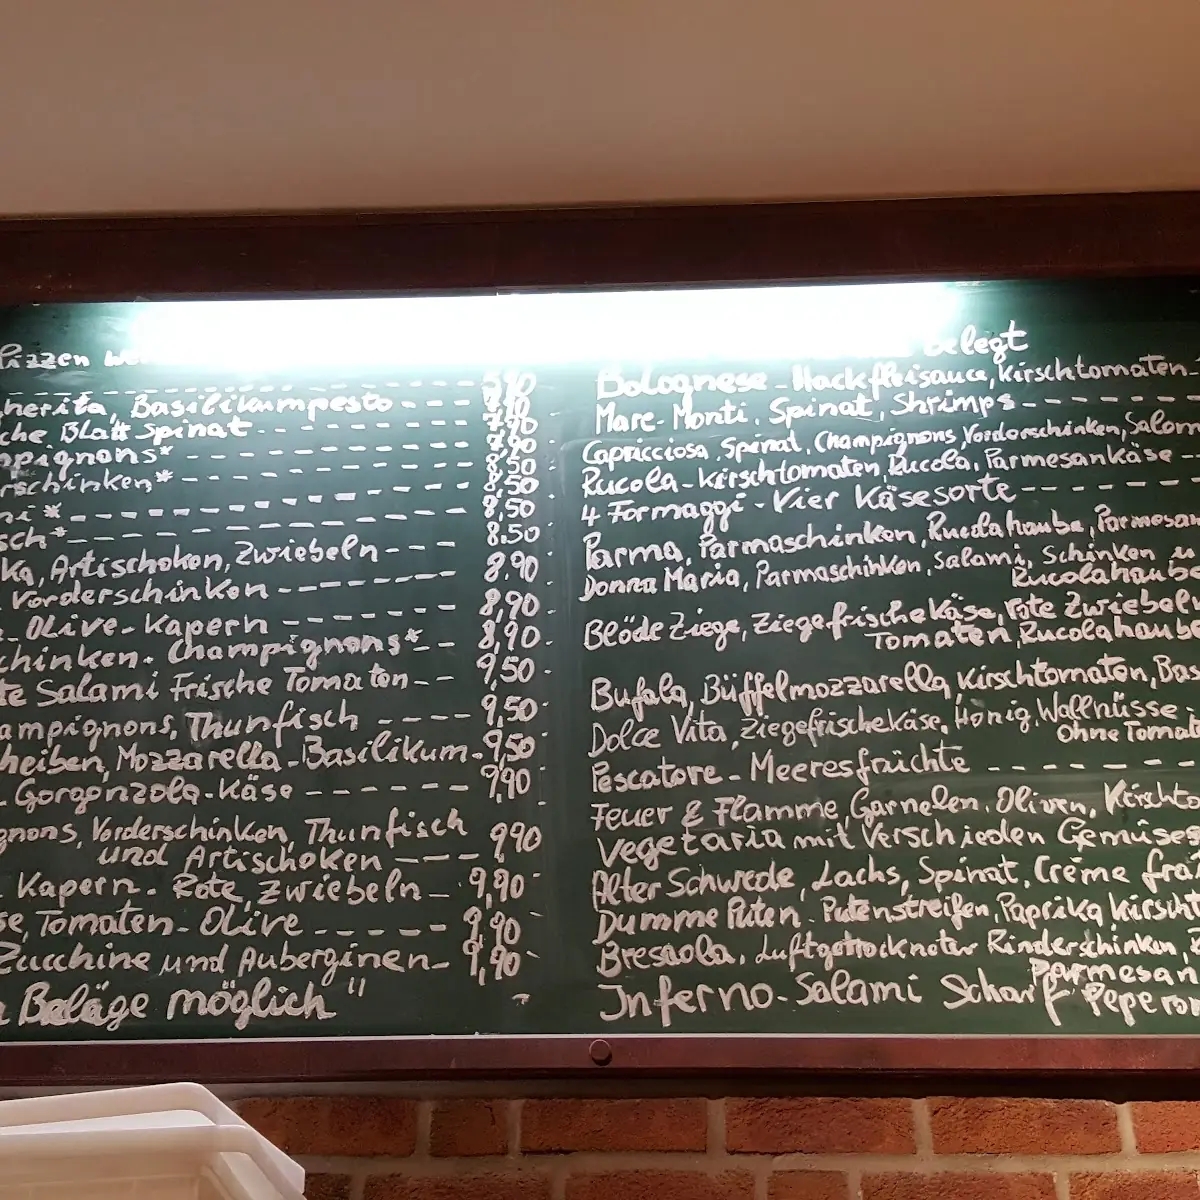 Pizzen
belegt
5,90
herita, Basilikumpesto ---
che Blatt Spinat ---- 7,90
mpignons* ---- 7,90
rschinken* ---- 8,50
ni* ---- 8,50
sch* ---- 8,50
ka, Artischoken, Zwiebeln --- 8.50
Vorderschinken ---- 8,90
Olive-Kapern ---- 8,90
chinken. Champignons* -- 8,90
te Salami Frische Tomaten -- 9,50
ampignons, Thunfisch ---- 9,50
heiben, Mozzarella-Basilikum - 9,50
Gorgonzola-Käse ------ 9,90
gnons, Vorderschinken, Thunfisch
und Artischoken --- 9,90
Kapern. Rote, Zwiebeln - 9,90
se, Tomaten-Olive ---- 9,90
Zucchine und Auberginen - 9,90
Beläge möglich"
Bolognese - Hackfleisauce, Kirschtomaten-
Mare-Monti, Spinat, Shrimps ----
Capricciosa, Spinat, Champignons, Vorderschinken, Salam
Rucola-Kirschtomaten, Ruccola, Parmesankäse --
4 Formaggi-Vier Käsesorte -----
Parma, Parmaschinken, Rucolahaube, Parmesan
Donna Maria, Parmaschinken, Salami, Schinken u
Rucolahaube
Blöde Ziege, ZiegefrischeKäse, rote Zwiebeln
Tomaten, Rucolahaube
Bufala, Büffelmozzarella, Kirschtomaten, Bas
Dolce Vita, ZiegefrischeKäse, Honig Wallnüsse
ohne Tomat
Pescatore - Meeresfrüchte -----
Feuer & Flamme, Garnelen, Oliven, Kirschto
Vegetaria mit Verschieden Gemüses
Alter Schwede, Lachs, Spinat, Crème fraî
Dumme Puten - Putenstreifen, Paprika Kirscht
Bresaola, Luftgetrockneter Rinderschinken,
Parmesan
Inferno-Salami Scharf Pepero